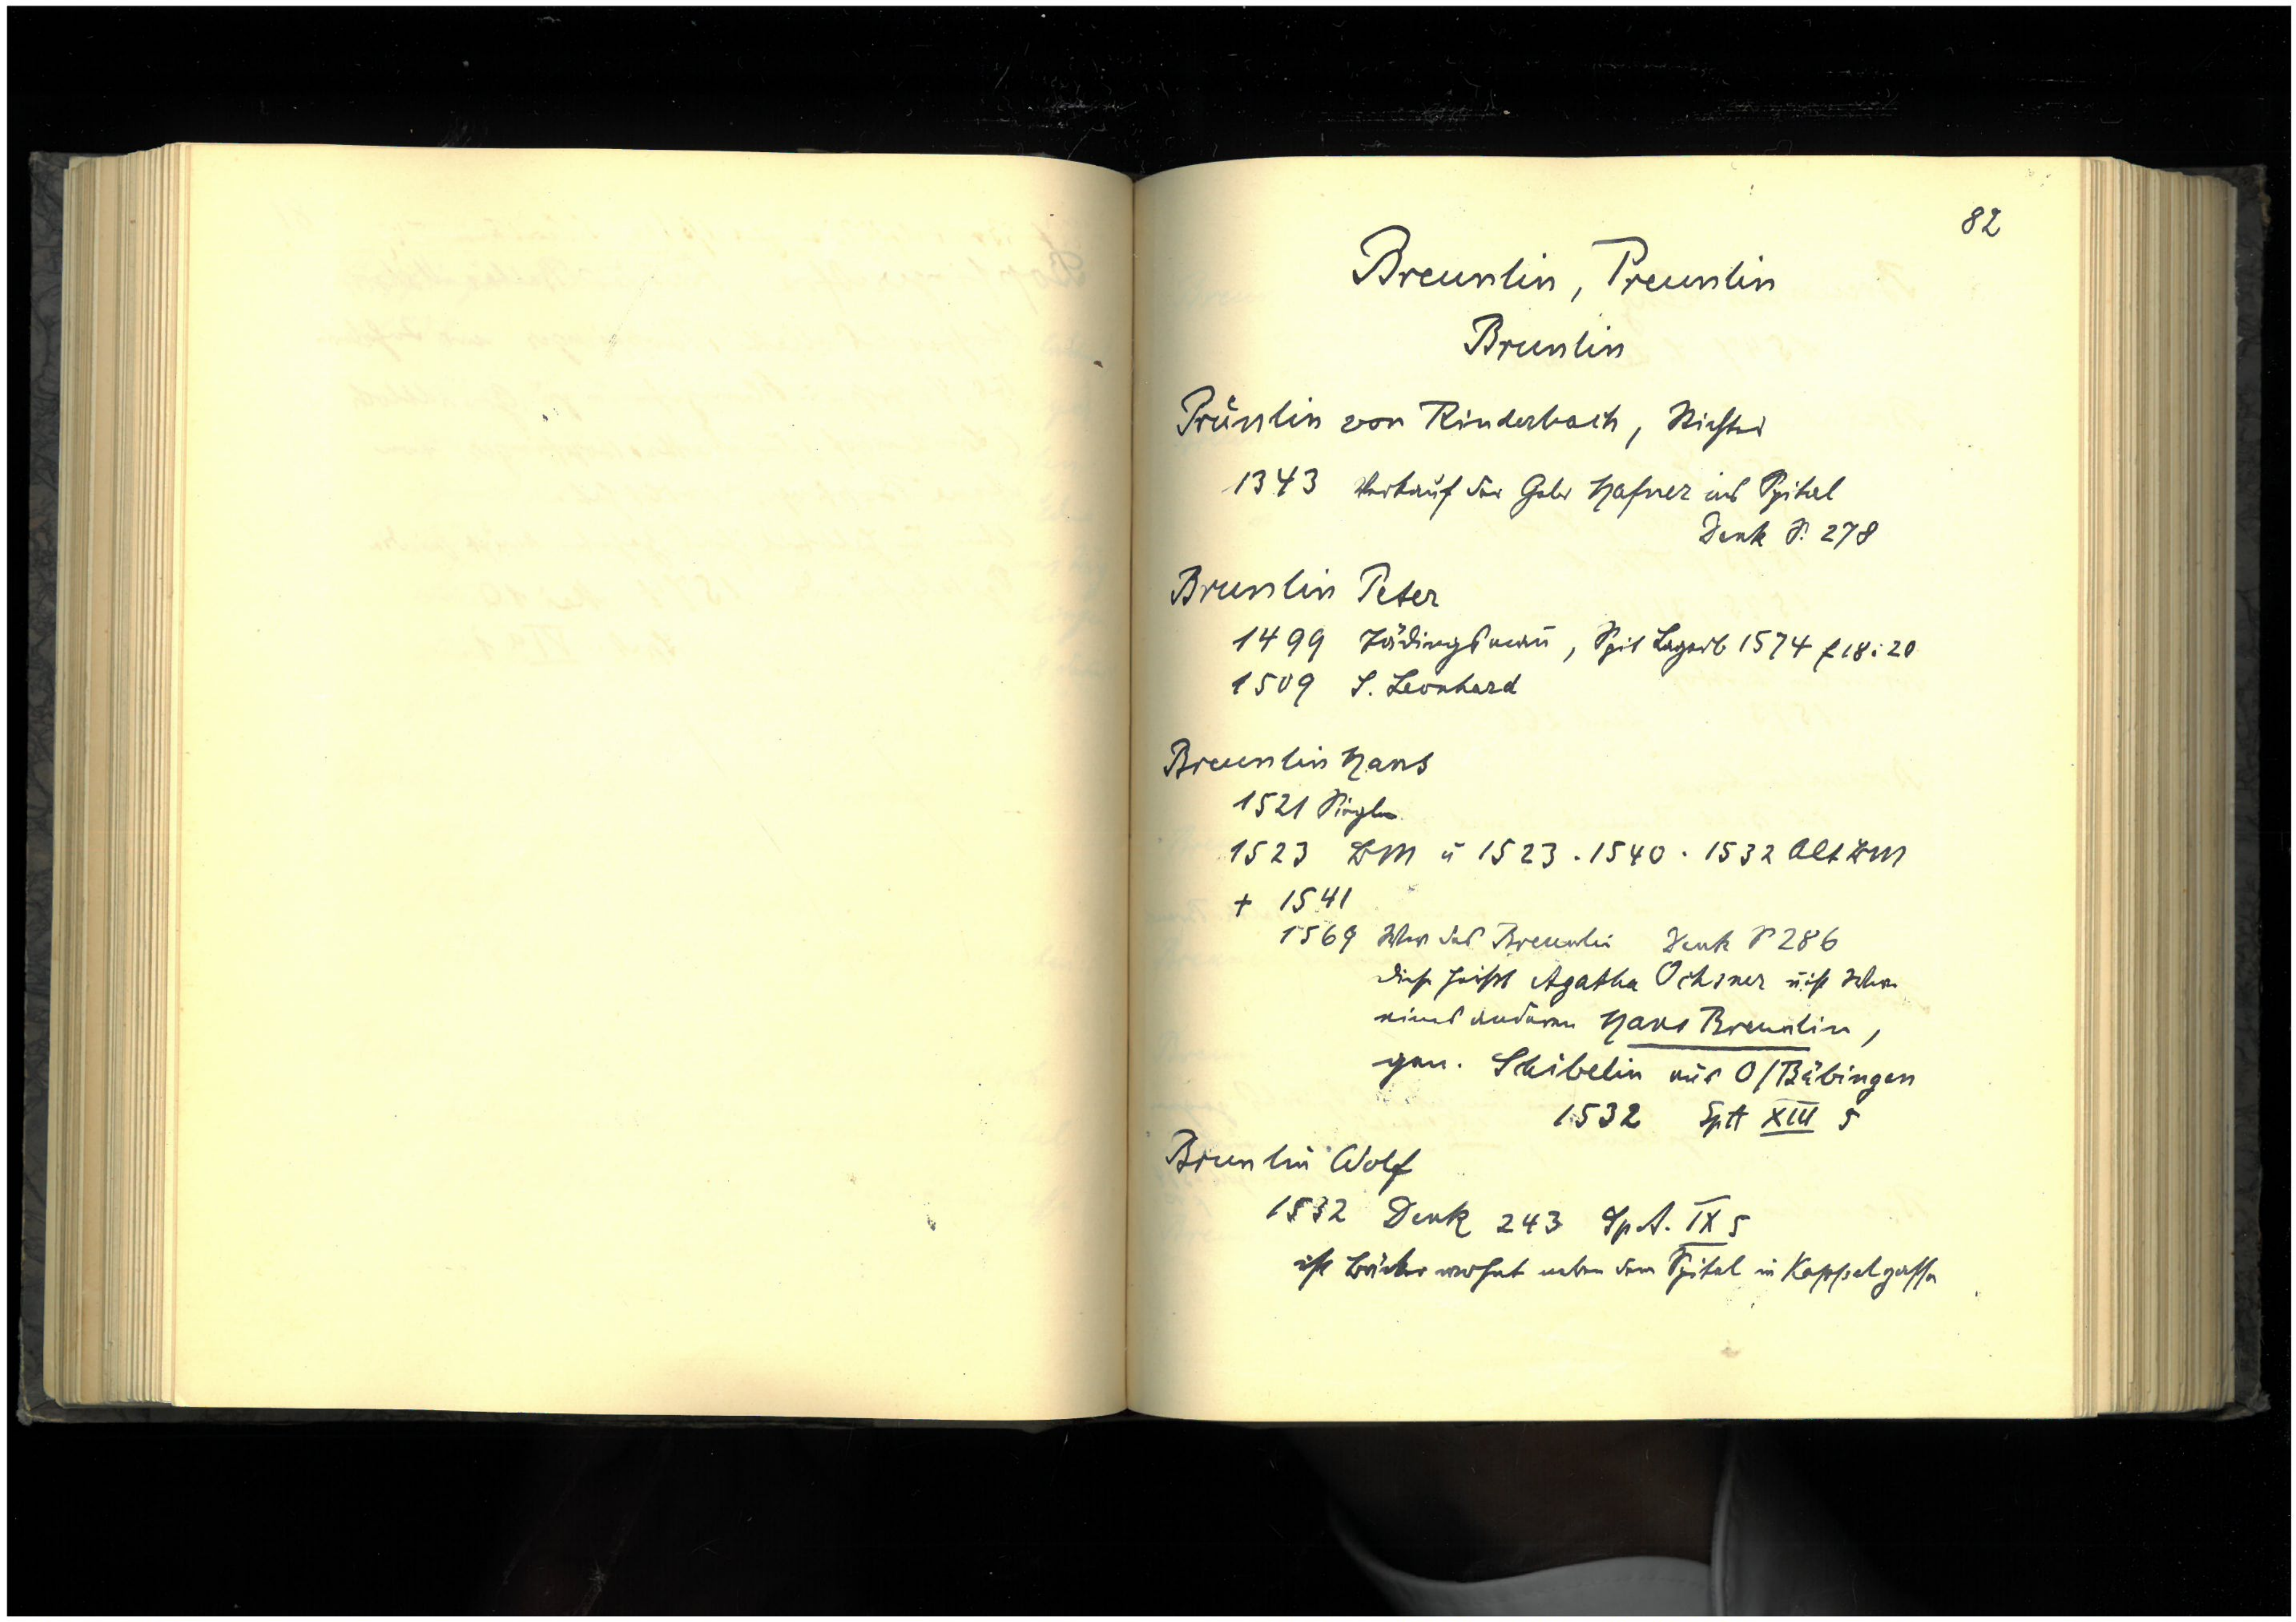 82
Breunlin, Preunlin
Brunlin
Prünlin von Rinderbach, Richter
1343 Verkauf der Gebr Hafner ins Spital
Denk S. 278
Brunlin Peter
1499 Tädingsmañ, Spit Lagerb 1574 f 18. 20
1509 S. Leonhard
Breunlin Hans
1521 Siegler
1523 BM u 1523 . 1540 . 1532 Alt BM
+ 1541
1569 Wtw des Breunlin Denk S 286
diese heißt Agatha Ochsner u ist Witwe
eines anderen Hans Breunlin,
gen. Scheibelin aus O/Bäbingen
1532 SpA XIII 5
Brunlin Wolf
1532 Denk 243 SpA. IX 5
ist Bäcker wohnt neben dem Spital in Kappelgasse